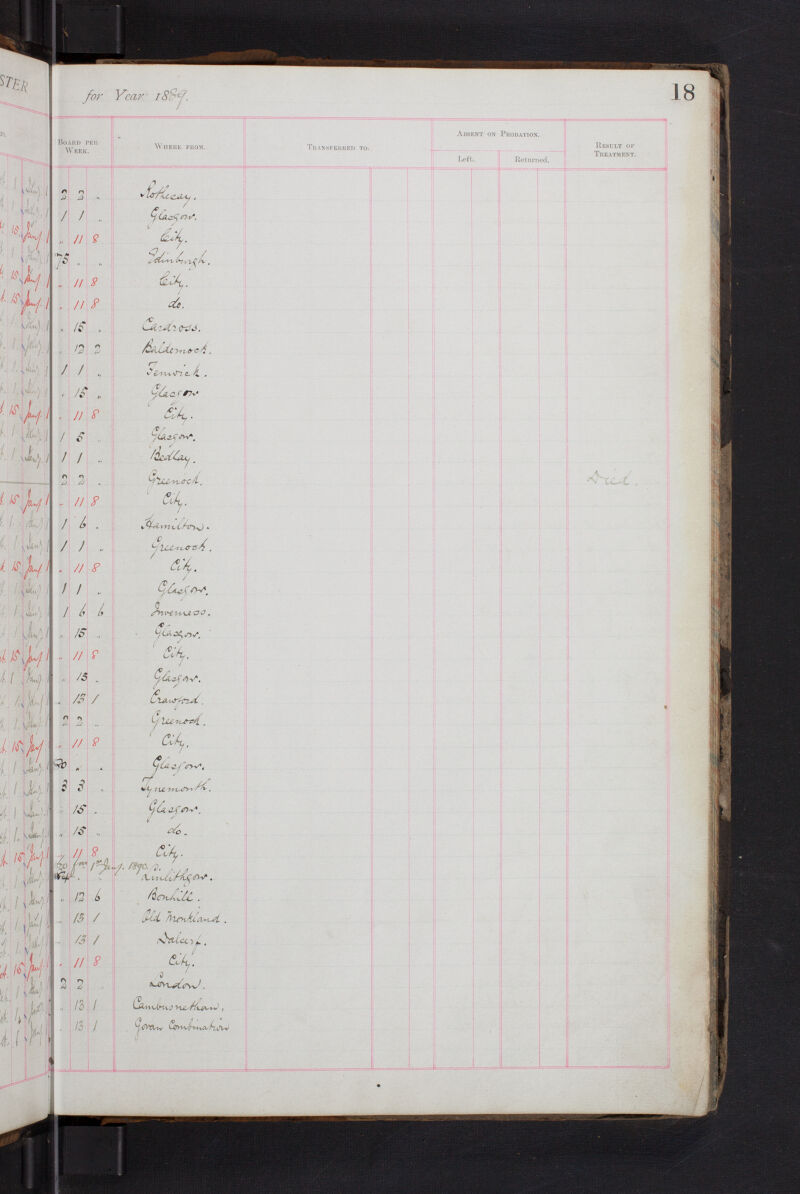 STER
for Year 1889.
18
Board per Week.
Where from.
Transferred to.
Absent on Probation.
Left.
Returned.
Result of Treatment.
2 2 „ Rothesay.
1 1 „ Glasgow.
„ 11 8 City.
75 „ „ Edinburgh.
„ 11 8 City.
„ 11 8 do.
„ 15 „ Cardross.
„ 12 2 Baldernock.
1 1 „ Fenwick.
„ 15 „ Glasgow
„ 11 8 City.
1 5 „ Glasgow.
1 1 „ Bedlay.
2 2 „ Greenock. Died.
„ 11 8 City.
1 6 „ Hamilton.
1 1 „ Greenock.
„ 11 8 City.
1 1 „ Glasgow.
1 6 6 Inverness.
„ 15 „ Glasgow.
„ 11 8 City.
„ 15 „ Glasgow.
„ 13 1 Crawford.
2 2 „ Greenock.
„ 11 8 City.
„ „ Glasgow.
3 3 „ Tynemouth.
„ 15 „ Glasgow.
„ 15 „ do.
„ 11 8 City.
from 1st Jany. 1890.
Linlithgow.
„ 12 6 Bonhill.
„ 13 1 Old Monkland.
„ 13 1 Dalserf.
„ 11 8 City.
2 2 London.
„ 13 1 Cambusnethan.
„ 13 1 Govan Combination